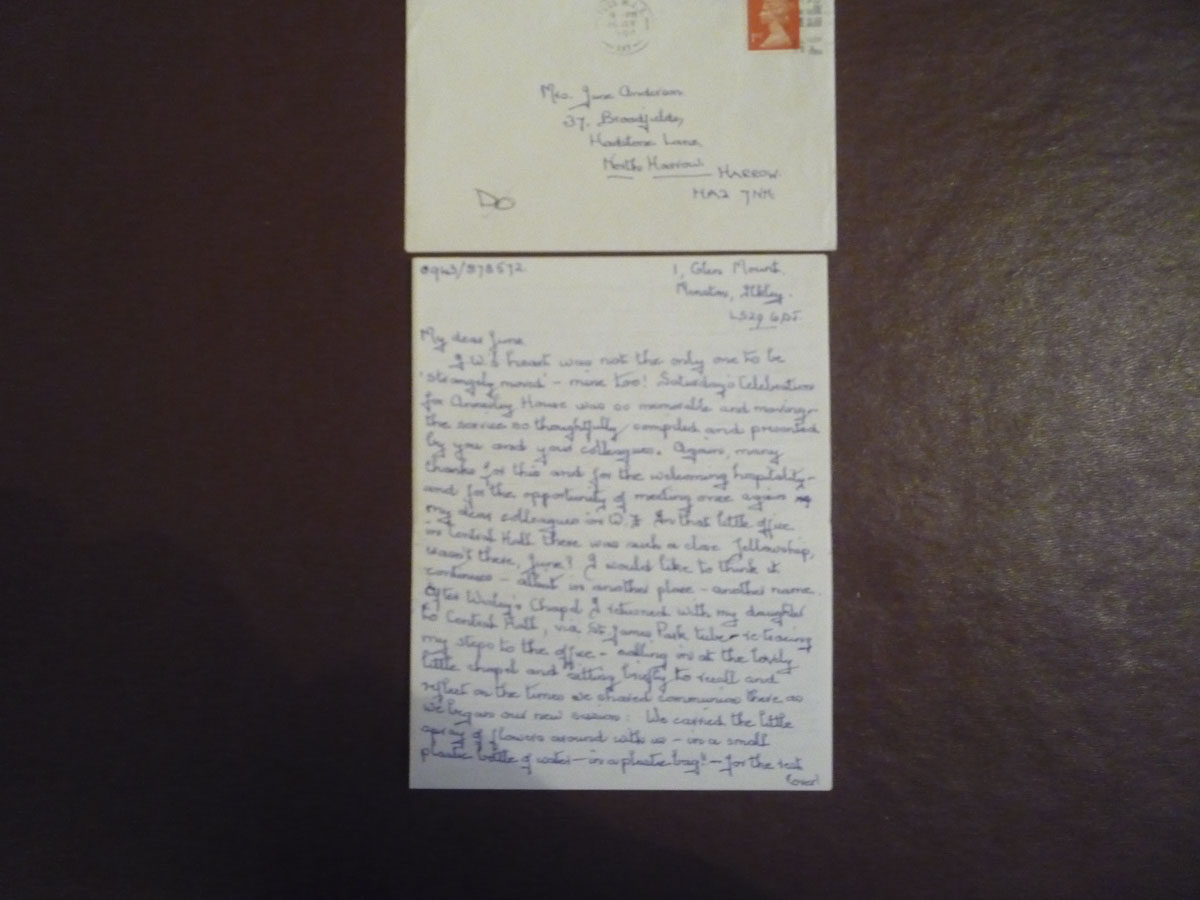 Mrs. June Anderson
37, Broadfields,
Headstone Lane,
North Harrow HARROW.
HA2 7NH
Do
0943/878572
1, Glen Mount,
Menston, Ilkley.
LS29
My dear June
J.W.'s heart was not the only one to be
'strangely moved' - mine too! Saturday's Celebration
for Annesley House was so memorable and moving -
the service so thoughtfully compiled and presented
by you and your colleagues. Again, many
thanks for this and for the welcoming hospitality -
and for the opportunity of meeting once again
my dear colleagues in W.F. In that little office
in Central Hall there was such a close fellowship,
wasn't there, June? I would like to think it
continues - albeit in another place - another name.
After Wesley's Chapel I returned with my daughter
to Central Hall, via St. James Park tube - re-tracing
my steps to the office - calling in at the lovely
little chapel and sitting briefly to recall and
reflect on the times we shared communion there as
we began our new session. We carried the little
spray of flowers around with us - in a small
plastic bottle of water - in a plastic bag! - for the rest
(over)